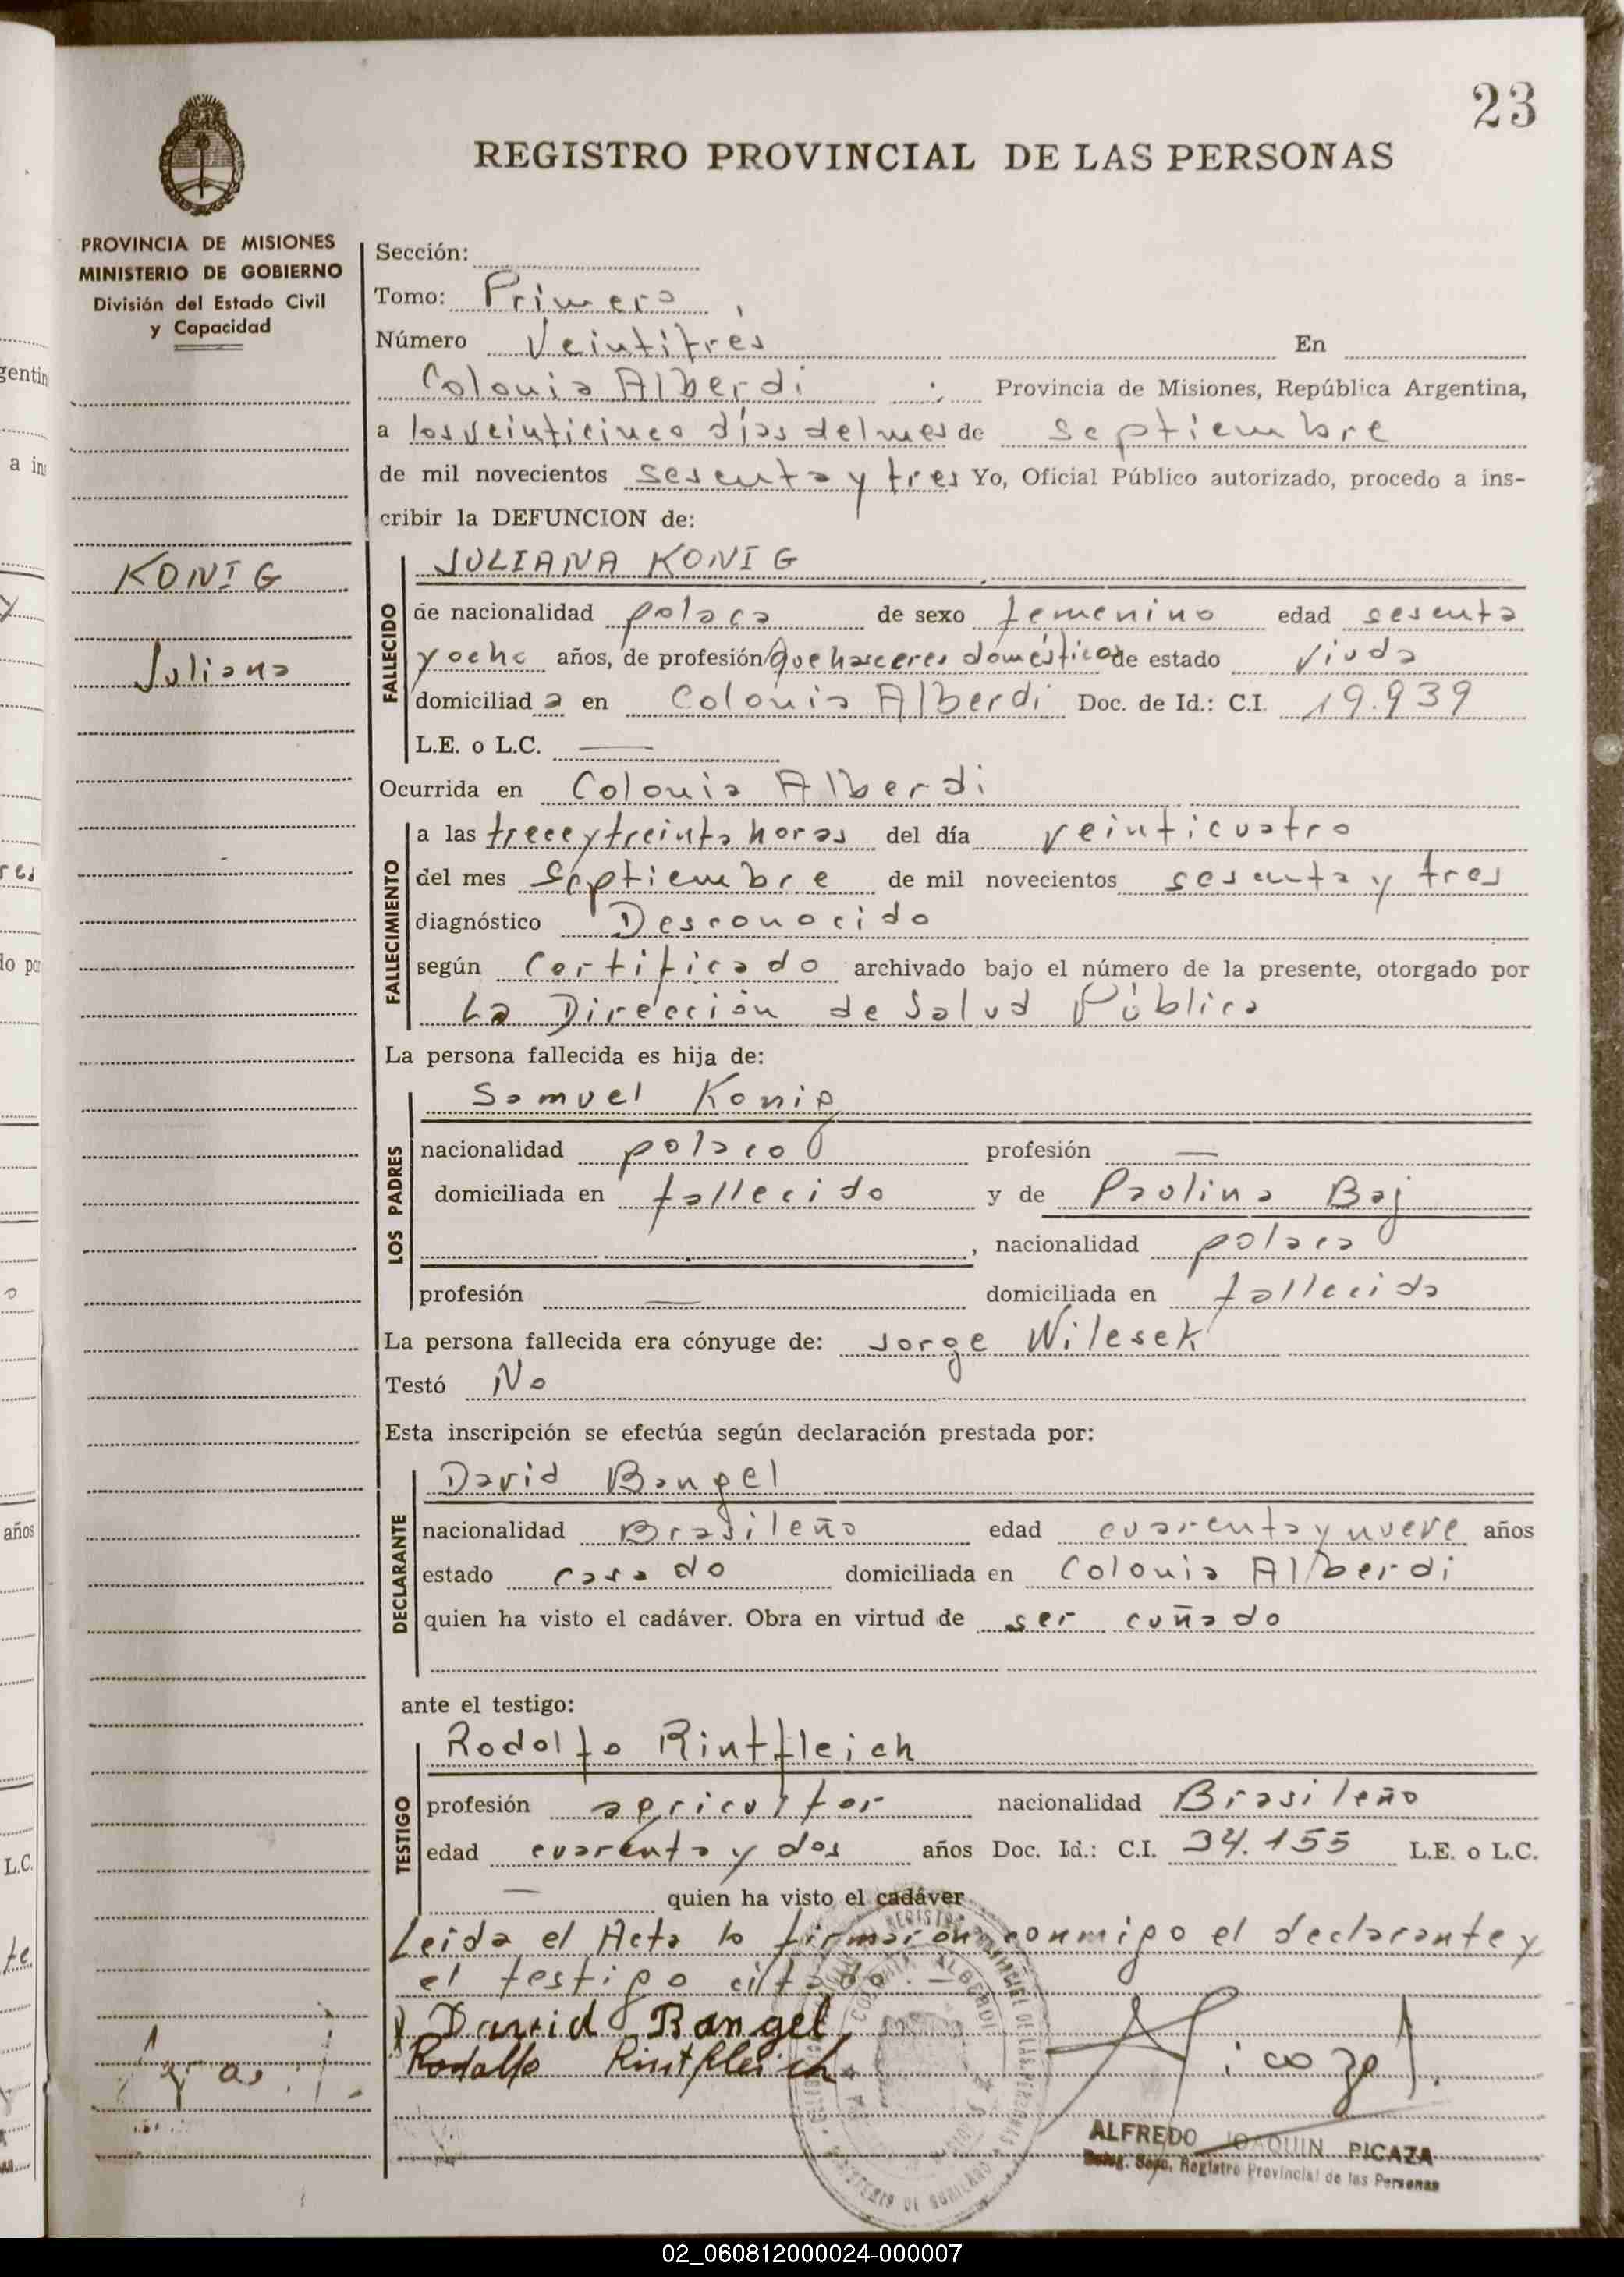 23
REGISTRO PROVINCIAL DE LAS PERSONAS
PROVINCIA DE MISIONES
MINISTERIO DE GOBIERNO
División del Estado Civil
y Capacidad
KONIG
Juliana
Sección:
Tomo: Primero
Número Veintitrés En
Colonia Alberdi ; Provincia de Misiones, República Argentina,
a los veinticinco días del mes de septiembre
de mil novecientos sesenta y tres Yo, Oficial Público autorizado, procedo a ins-
cribir la DEFUNCION de:
FALLECIDO
JULIANA KONIG
de nacionalidad polaca de sexo femenino edad sesenta
y ocho años, de profesión Que hasceres domésticos de estado viuda
domiciliad a en Colonia Alberdi Doc. de Id.: C.I. 19.939
L.E. o L.C. —
Ocurrida en Colonia Alberdi
FALLECIMIENTO
a las trece y treinta horas del día veinticuatro
del mes Septiembre de mil novecientos sesenta y tres
diagnóstico Desconocido
según Certificado archivado bajo el número de la presente, otorgado por
La Dirección de Salud Pública
La persona fallecida es hija de:
LOS PADRES
Samuel Konig
nacionalidad polaco profesión —
domiciliada en fallecido y de Paolina Baj
, nacionalidad polaca
profesión — domiciliada en fallecida
La persona fallecida era cónyuge de: Jorge Wilesek
Testó No
Esta inscripción se efectúa según declaración prestada por:
DECLARANTE
David Bangel
nacionalidad Brasileño edad cuarenta y nueve años
estado casado domiciliada en Colonia Alberdi
quien ha visto el cadáver. Obra en virtud de ser cuñado
ante el testigo:
TESTIGO
Rodolfo Rintfleich
profesión agricultor nacionalidad Brasileño
edad cuarenta y dos años Doc. Id.: C.I. 34.155 L.E. o L.C.
— quien ha visto el cadáver
Leida el Acta lo firmaron conmigo el declarante y
el testigo citado. —
David Bangel
Rodolfo Rintfleich
ALFREDO JOAQUIN PICAZA
Deleg. Secc. Registro Provincial de las Personas
02_060812000024-000007